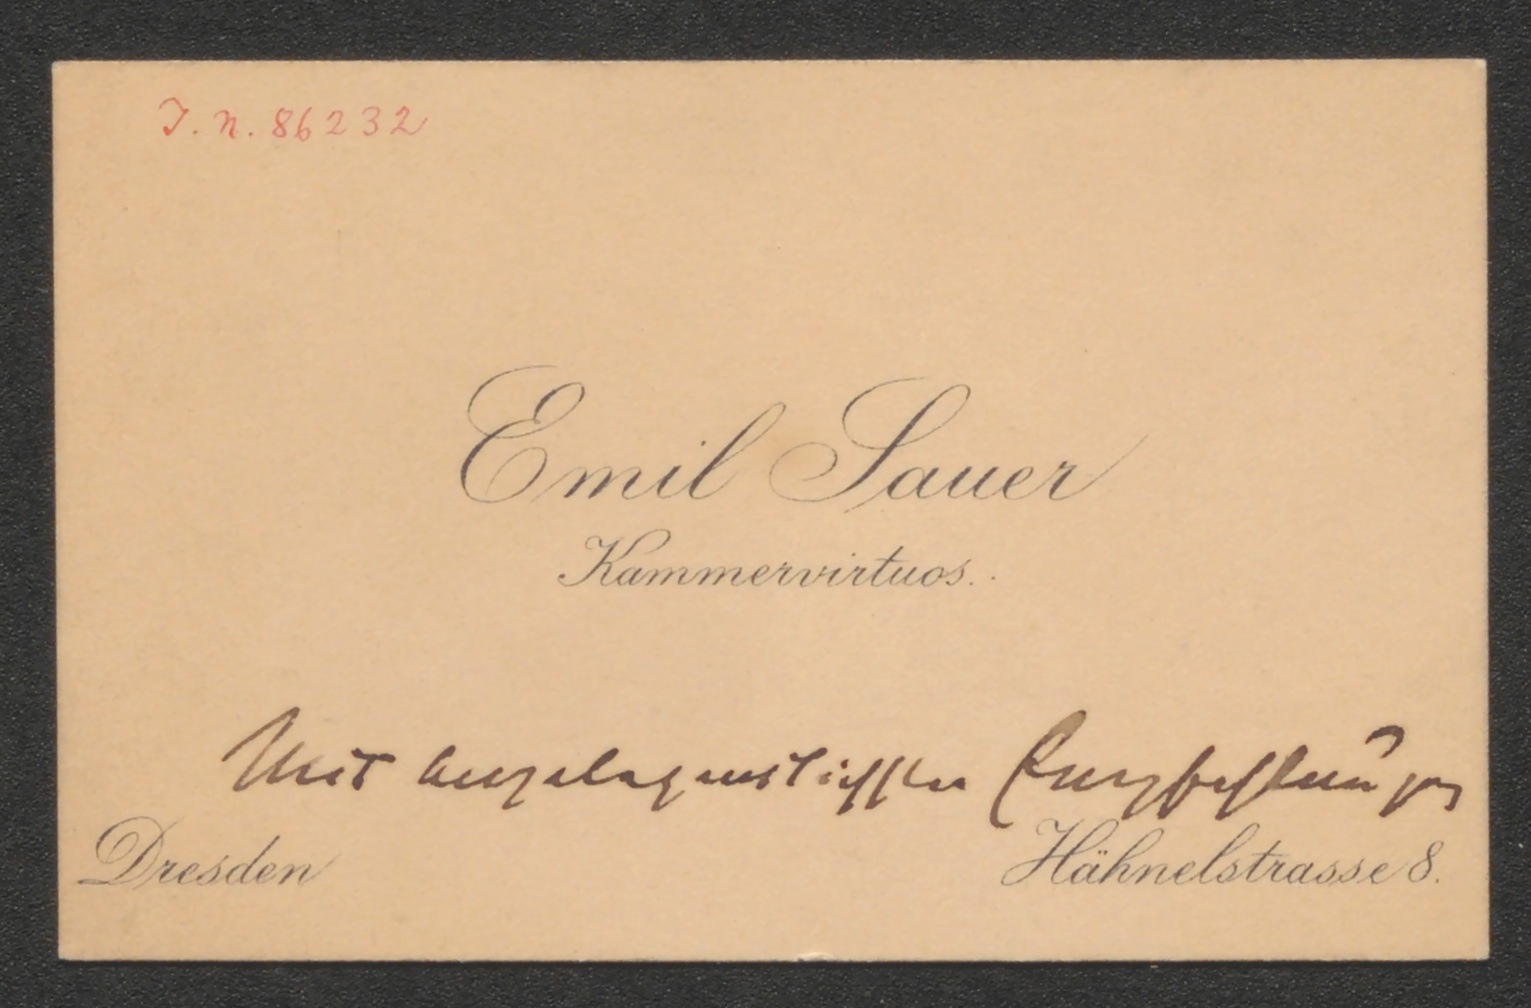 I. N. 86232
Emil Sauer
Kammervirtuos.
Mit angelegentlichsten Empfehlungen
Dresden
Hähnelstrasse 8.